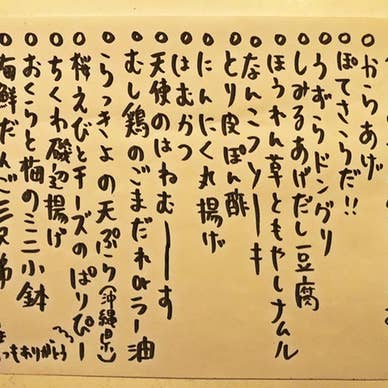 からあげ
ぽてさらだ!!
うずらドングリ
しみるあげだし豆腐
ほうれん草ともやしナムル
なんこつソーキ
とり皮ぽん酢
にんにく丸揚げ
はむかつ
天使のはねむーす
むし鶏のごまだれorラー油
らっきょの天ぷら(沖縄県)
桜えびとチーズのぱりぴー
ちくわ磯辺揚げ
おくらと梅のミニ小鉢
海鮮だんご三兄弟
つもありがとう